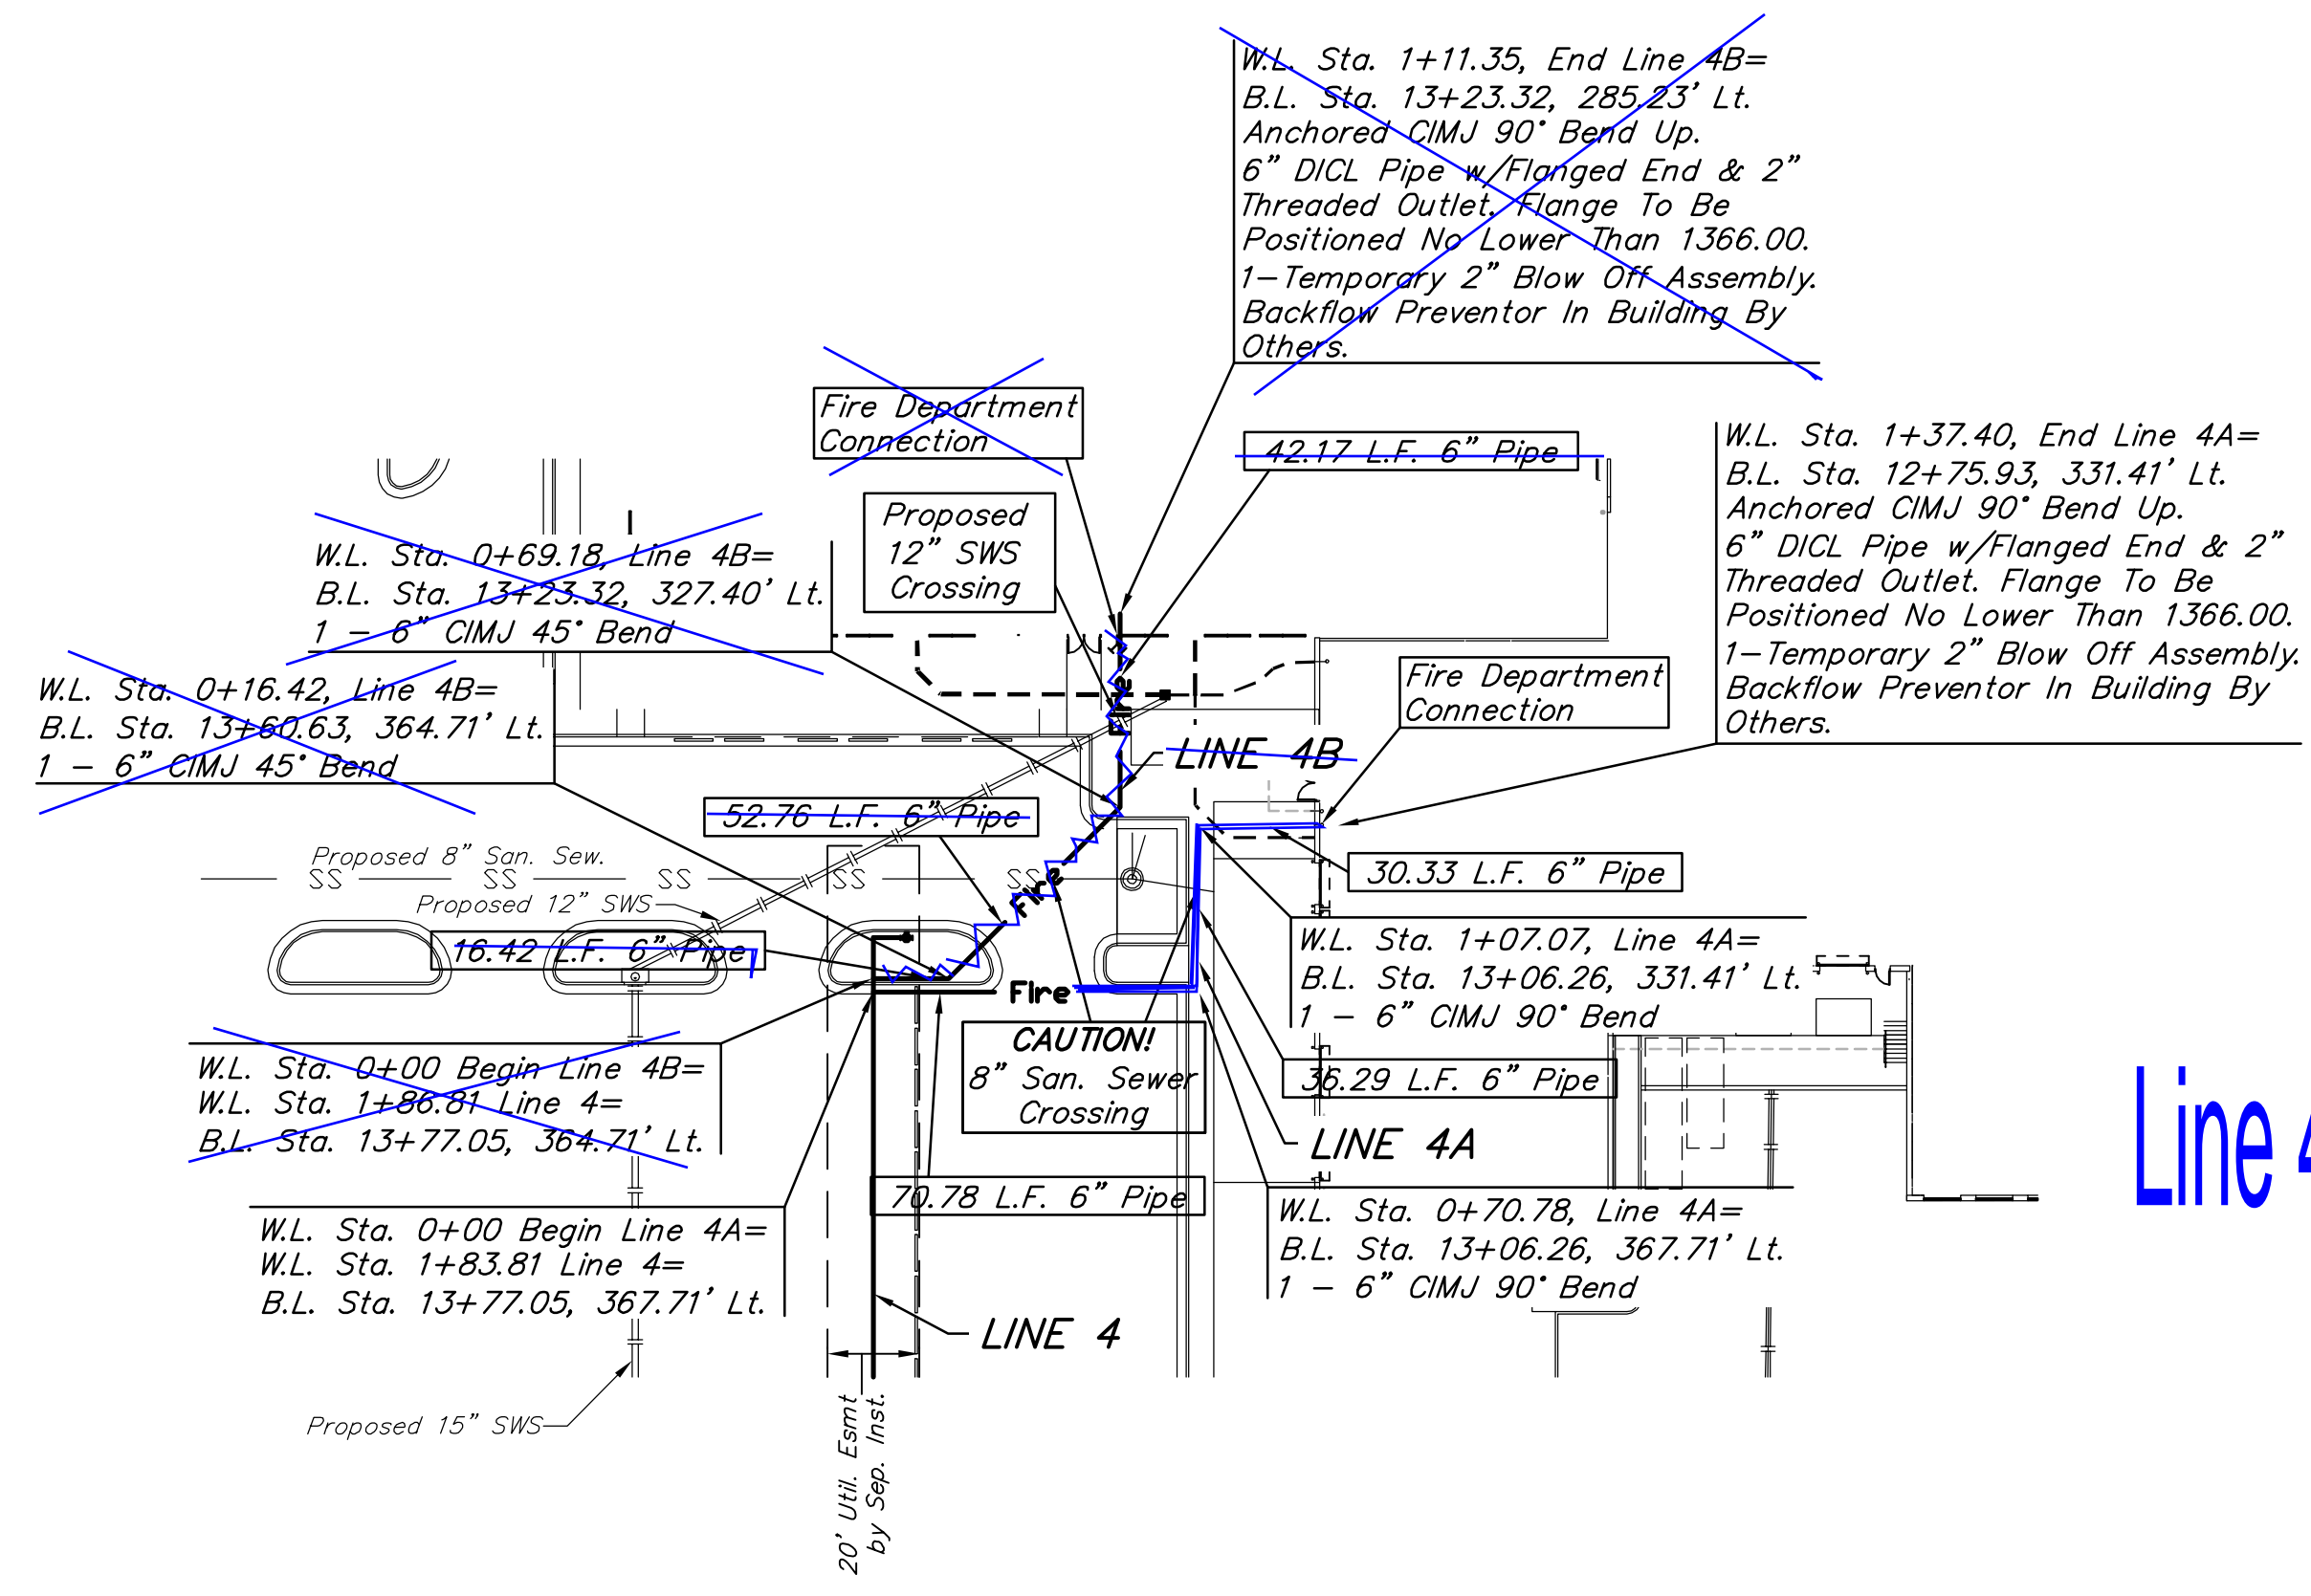 W.L. Sta. 1+11.35, End Line 4B=
B.L. Sta. 13+23.32, 285.23' Lt.
Anchored CIMJ 90° Bend Up.
6" DICL Pipe w/Flanged End & 2"
Threaded Outlet. Flange To Be
Positioned No Lower Than 1366.00.
1-Temporary 2" Blow Off Assembly.
Backflow Preventor In Building By
Others.
Fire Department
Connection
42.17 L.F. 6" Pipe
W.L. Sta. 1+37.40, End Line 4A=
B.L. Sta. 12+75.93, 331.41' Lt.
Anchored CIMJ 90° Bend Up.
6" DICL Pipe w/Flanged End & 2"
Threaded Outlet. Flange To Be
Positioned No Lower Than 1366.00.
1-Temporary 2" Blow Off Assembly.
Backflow Preventor In Building By
Others.
Proposed
12" SWS
Crossing
W.L. Sta. 0+69.18, Line 4B=
B.L. Sta. 13+23.32, 327.40' Lt.
1 - 6" CIMJ 45° Bend
W.L. Sta. 0+16.42, Line 4B=
B.L. Sta. 13+60.63, 364.71' Lt.
1 - 6" CIMJ 45° Bend
Fire Department
Connection
Fire
LINE 4B
52.76 L.F. 6" Pipe
Proposed 8" San. Sew.
SS SS SS SS SS
Proposed 12" SWS
Fire
30.33 L.F. 6" Pipe
16.42 L.F. 6" Pipe
W.L. Sta. 1+07.07, Line 4A=
B.L. Sta. 13+06.26, 331.41' Lt.
1 - 6" CIMJ 90° Bend
Fire
CAUTION!
8" San. Sewer
Crossing
W.L. Sta. 0+00 Begin Line 4B=
W.L. Sta. 1+86.81 Line 4=
B.L. Sta. 13+77.05, 364.71' Lt.
36.29 L.F. 6" Pipe
LINE 4A
Line 4
70.78 L.F. 6" Pipe
W.L. Sta. 0+00 Begin Line 4A=
W.L. Sta. 1+83.81 Line 4=
B.L. Sta. 13+77.05, 367.71' Lt.
W.L. Sta. 0+70.78, Line 4A=
B.L. Sta. 13+06.26, 367.71' Lt.
1 - 6" CIMJ 90° Bend
LINE 4
Proposed 15" SWS
20' Util. Esmt
by Sep. Inst.